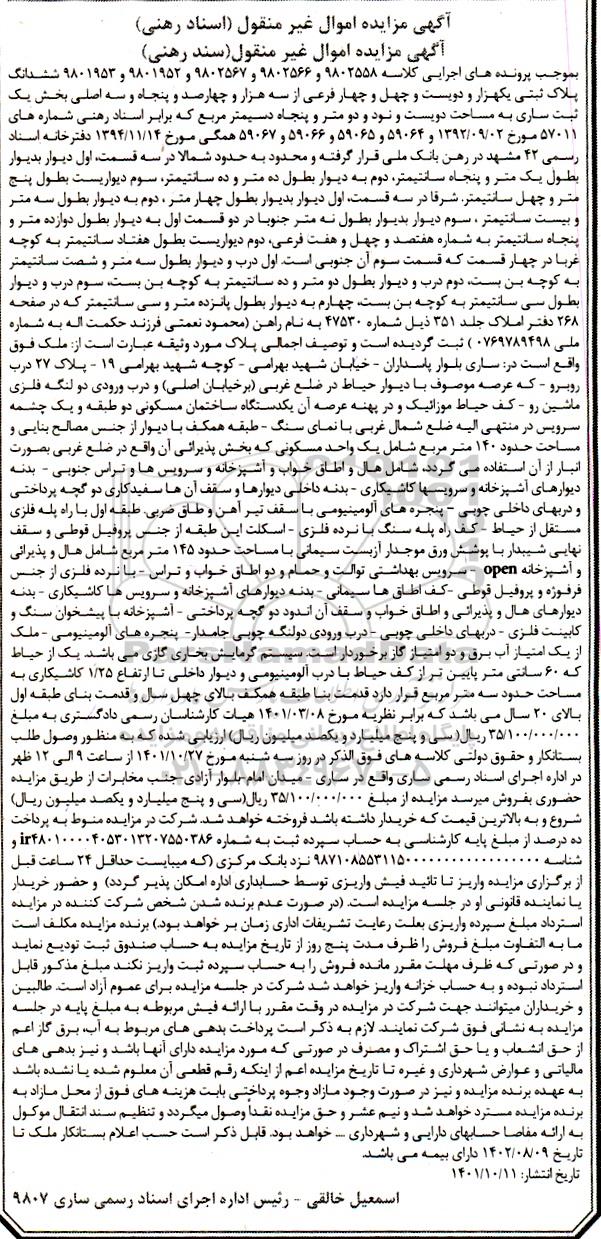 آگهی مزایده اموال غیر منقول (اسناد رهنی)
آگهی مزایده اموال غیر منقول(سند رهنی)
بموجب پرونده های اجرایی کلاسه ۹۸۰۲۵۵۸ و ۹۸۰۲۵۶۶ و ۹۸۰۲۵۶۷ و ۹۸۰۱۹۵۲ و ۹۸۰۱۹۵۳ ششدانگ
پلاک ثبتی یکهزار و دویست و چهل و چهار فرعی از سه هزار و چهارصد و پنجاه و سه اصلی بخش یک
ثبت ساری به مساحت دویست و نود و دو متر و پنجاه دسیمتر مربع که برابر اسناد رهنی شماره های
۵۷۰۱۱ مورخ ۱۳۹۲/۰۹/۰۲ و ۵۹۰۶۴ و ۵۹۰۶۵ و ۵۹۰۶۶ و ۵۹۰۶۷ همگی مورخ ۱۳۹۴/۱۱/۱۴ دفترخانه اسناد
رسمی ۴۲ مشهد در رهن بانک ملی قرار گرفته و محدود به حدود شمالا در سه قسمت، اول دیوار بدیوار
بطول یک متر و پنجاه سانتیمتر، دوم به دیوار بطول ده متر و ده سانتیمتر، سوم دیواریست بطول پنج
متر و چهل سانتیمتر. شرقا در سه قسمت، اول دیوار بدیوار بطول چهار متر ، دوم به دیوار بطول سه متر
و بیست سانتیمتر ، سوم دیوار بدیوار بطول نه متر جنوبا در دو قسمت اول به دیوار بطول دوازده متر و
پنجاه سانتیمتر به شماره هفتصد و چهل و هفت فرعی، دوم دیواریست بطول هفتاد سانتیمتر به کوچه
غربا در چهار قسمت که قسمت سوم آن جنوبی است. اول درب و دیوار بطول سه متر و شصت سانتیمتر
به کوچه بن بست، دوم درب و دیوار بطول دو متر و ده سانتیمتر به کوچه بن بست، سوم درب و دیوار
بطول سی سانتیمتر به کوچه بن بست، چهارم به دیوار بطول پانزده متر و سی سانتیمتر که در صفحه
۲۶۸ دفتر املاک جلد ۳۵۱ ذیل شماره ۴۷۵۳۰ به نام راهن (محمود نعمتی فرزند حکمت اله به شماره
ملی ۰۷۶۹۷۸۹۴۹۸ ) ثبت گردیده است و توصیف اجمالی پلاک مورد وثیقه عبارت است از: ملک فوق
واقع است در: ساری بلوار پاسداران - خیابان شهید بهرامی - کوچه شهید بهرامی ۱۹ - پلاک ۲۷ درب
روبرو - که عرصه موصوف با دیوار حیاط در ضلع غربی (برخیابان اصلی) و درب ورودی دو لنگه فلزی
ماشین رو - کف حیاط موزائیک و در پهنه عرصه آن یکدستگاه ساختمان مسکونی دو طبقه و یک چشمه
سرویس در منتهی الیه ضلع شمال غربی با نمای سنگ - طبقه همکف با دیوار از جنس مصالح بنایی و
مساحت حدود ۱۴۰ متر مربع شامل یک واحد مسکونی که بخش پذیرائی آن واقع در ضلع غربی بصورت
انبار از آن استفاده می گردد، شامل هال و اطاق خواب و آشپزخانه و سرویس ها و تراس جنوبی - بدنه
دیوارهای آشپزخانه و سرویسها کاشیکاری - بدنه داخلی دیوارها و سقف آن ها سفیدکاری دو گچه پرداختی
و دربهای داخلی چوبی - پنجره های آلومینیومی با سقف تیر آهن و طاق ضربی. طبقه اول با راه پله فلزی
مستقل از حیاط - کف راه پله سنگ با نرده فلزی - اسکلت این طبقه از جنس پروفیل قوطی و سقف
نهایی شیبدار با پوشش ورق موجدار آزبست سیمانی با مساحت حدود ۱۴۵ متر مربع شامل هال و پذیرائی
و آشپزخانه open - سرویس بهداشتی توالت و حمام و دو اطاق خواب و تراس - با نرده فلزی از جنس
فرفوژه و پروفیل قوطی -کف اطاق ها سیمانی - بدنه دیوارهای آشپزخانه و سرویس ها کاشیکاری - بدنه
دیوارهای هال و پذیرائی و اطاق خواب و سقف آن اندود دو گچه پرداختی - آشپزخانه با پیشخوان سنگ و
کابینت فلزی - دربهای داخلی چوبی - درب ورودی دولنگه چوبی جامدار- پنجره های آلومینیومی - ملک
از یک امتیاز آب برق و دو امتیاز گاز برخوردار است. سیستم گرمایش بخاری گازی می باشد. یک از حیاط
که ۶۰ سانتی متر پایین تر از کف حیاط با درب آلومینیومی و دیوار داخلی تا ارتفاع ۱/۲۵ کاشیکاری به
مساحت حدود سه متر مربع قرار دارد قدمت بنا طبقه همکف بالای چهل سال و قدمت بنای طبقه اول
بالای ۲۰ سال می باشد که برابر نظریه مورخ ۱۴۰۱/۰۳/۰۸ هیات کارشناسان رسمی دادگستری به مبلغ
۳۵/۱۰۰/۰۰۰/۰۰۰ ریال( سی و پنج میلیارد و یکصد میلیون ریال) ارزیابی شده که به منظور وصول طلب
بستانکار و حقوق دولتی کلاسه های فوق الذکر در روز سه شنبه مورخ ۱۴۰۱/۱۰/۲۷ از ساعت ۹ الی ۱۲ ظهر
در اداره اجرای اسناد رسمی ساری واقع در ساری - میدان امام بلوار آزادی جنب مخابرات از طریق مزایده
حضوری بفروش میرسد مزایده از مبلغ ۳۵/۱۰۰/۰۰۰/۰۰۰ ریال(سی و پنج میلیارد و یکصد میلیون ریال)
شروع و به بالاترین قیمت که خریدار داشته باشد فروخته خواهد شد. شرکت در مزایده منوط به پرداخت
ده درصد از مبلغ پایه کارشناسی به حساب سپرده ثبت به شماره ir۴۸۰۱۰۰۰۰۴۰۵۳۰۱۳۲۰۷۵۵۰۳۸۶ و
شناسه نزد بانک مرکزی (که میبایست حداقل ۲۴ ساعت قبل
از برگزاری مزایده واریز تا تائید فیش واریزی توسط حسابداری اداره امکان پذیر گردد) و حضور خریدار
یا نماینده قانونی او در جلسه مزایده است. (در صورت عدم برنده شدن شخص شرکت کننده در مزایده
استرداد مبلغ سپرده واریزی بعلت رعایت تشریفات اداری زمان بر خواهد بود.) برنده مزایده مکلف است
ما به التفاوت مبلغ فروش را ظرف مدت پنج روز از تاریخ مزایده به حساب صندوق ثبت تودیع نماید
و در صورتی که ظرف مهلت مقرر مانده فروش را به حساب سپرده ثبت واریز نکند مبلغ مذکور قابل
استرداد نبوده و به حساب خزانه واریز خواهد شد شرکت در جلسه مزایده برای عموم آزاد است. طالبین
و خریداران میتوانند جهت شرکت در مزایده در وقت مقرر با ارائه فیش مربوطه به مبلغ پایه در جلسه
مزایده به نشانی فوق شرکت نمایند. لازم به ذکر است پرداخت بدهی های مربوط به آب، برق گاز اعم
از حق انشعاب و یا حق اشتراک و مصرف در صورتی که مورد مزایده دارای آنها باشد و نیز بدهی های
مالیاتی و عوارض شهرداری و غیره تا تاریخ مزایده اعم از اینکه رقم قطعی آن معلوم شده یا نشده باشد
به عهده برنده مزایده و نیز در صورت وجود مازاد وجوه پرداختی بابت هزینه های فوق از محل مازاد به
برنده مزایده مسترد خواهد شد و نیم عشر و حق مزایده نقداً وصول میگردد و تنظیم سند انتقال موکول
به ارائه مفاصا حسابهای دارایی و شهرداری .... خواهد بود. قابل ذکر است حسب اعلام بستانکار ملک تا
تاریخ ۱۴۰۲/۰۸/۰۹ دارای بیمه می باشد.
تاریخ انتشار: ۱۴۰۱/۱۰/۱۱
اسمعیل خالقی - رئیس اداره اجرای اسناد رسمی ساری ۹۸۰۷